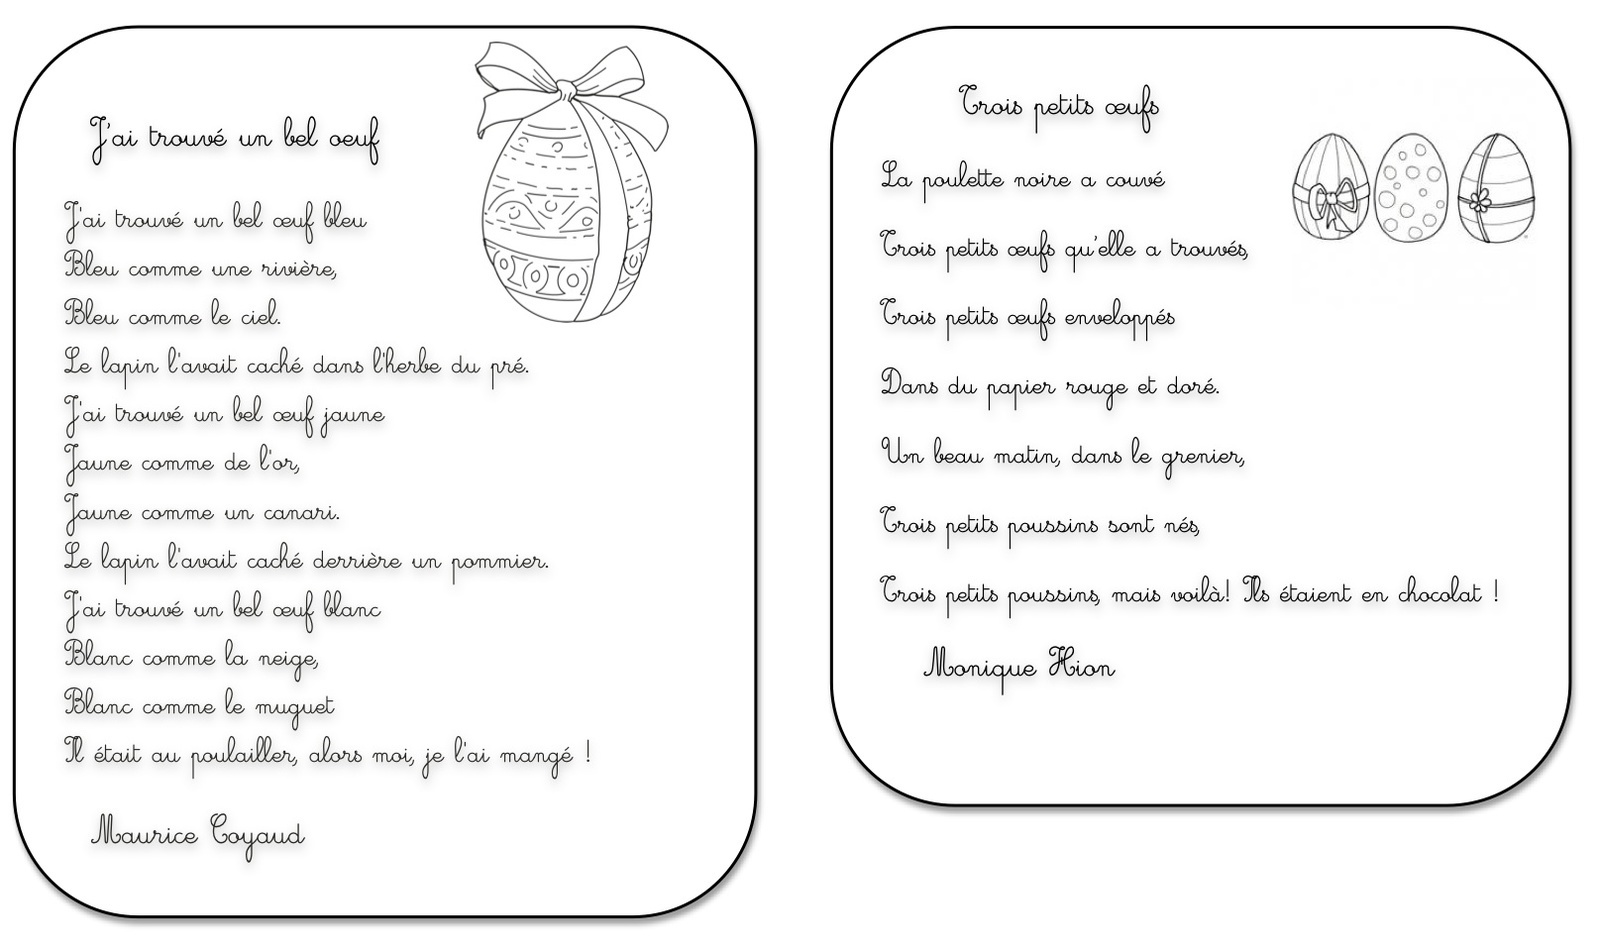 J'ai trouvé un bel oeuf
J'ai trouvé un bel œuf bleu
Bleu comme une rivière,
Bleu comme le ciel.
Le lapin l'avait caché dans l'herbe du pré.
J'ai trouvé un bel œuf jaune
Jaune comme de l'or,
Jaune comme un canari.
Le lapin l'avait caché derrière un pommier.
J'ai trouvé un bel œuf blanc
Blanc comme la neige,
Blanc comme le muguet
Il était au poulailler, alors moi, je l'ai mangé !
Maurice Coyaud
Trois petits œufs
La poulette noire a couvé
Trois petits œufs qu'elle a trouvés,
Trois petits œufs enveloppés
Dans du papier rouge et doré.
Un beau matin, dans le grenier,
Trois petits poussins sont nés,
Trois petits poussins, mais voilà! Ils étaient en chocolat !
Monique Hion